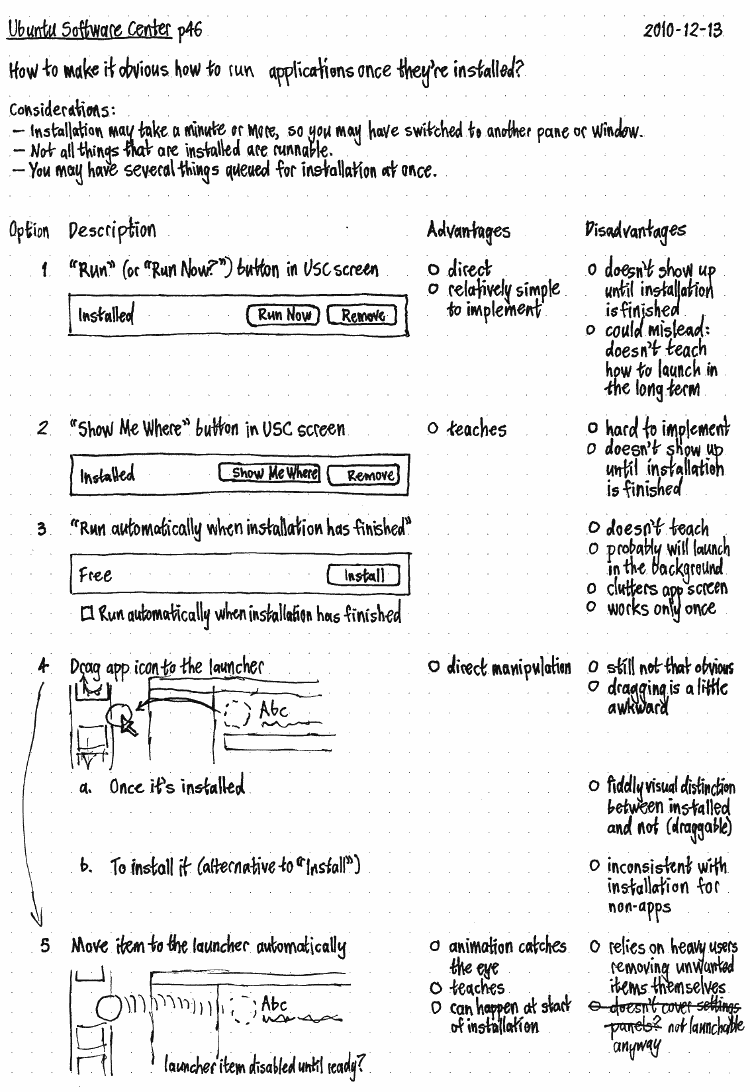 Ubuntu Software Center p46 2010-12-13
How to make it obvious how to run applications once they're installed?
Considerations:
– Installation may take a minute or more, so you may have switched to another pane or window.
– Not all things that are installed are runnable.
– You may have several things queued for installation at once.
Option Description Advantages Disadvantages
1 "Run" (or "Run Now?") button in USC screen
Installed Run Now Remove
o direct
o relatively simple
to implement
o doesn't show up
until installation
is finished
o could mislead:
doesn't teach
how to launch in
the long term
2 "Show Me Where" button in USC screen
Installed Show Me Where Remove
o teaches
o hard to implement
o doesn't show up
until installation
is finished
3 "Run automatically when installation has finished"
Free Install
Run automatically when installation has finished
o doesn't teach
o probably will launch
in the background
o clutters app screen
o works only once
4 Drag app icon to the launcher
Abc
o direct manipulation
o still not that obvious
o dragging is a little
awkward
a. Once it's installed
o fiddly visual distinction
between installed
and not (draggable)
b. To install it (alternative to "Install")
o inconsistent with
installation for
non-apps
5 Move item to the launcher automatically
Abc
launcher item disabled until ready?
o animation catches
the eye
o teaches
o can happen at start
of installation
o relies on heavy users
removing unwanted
items themselves
o doesn't cover settings
panels? not launchable
anyway